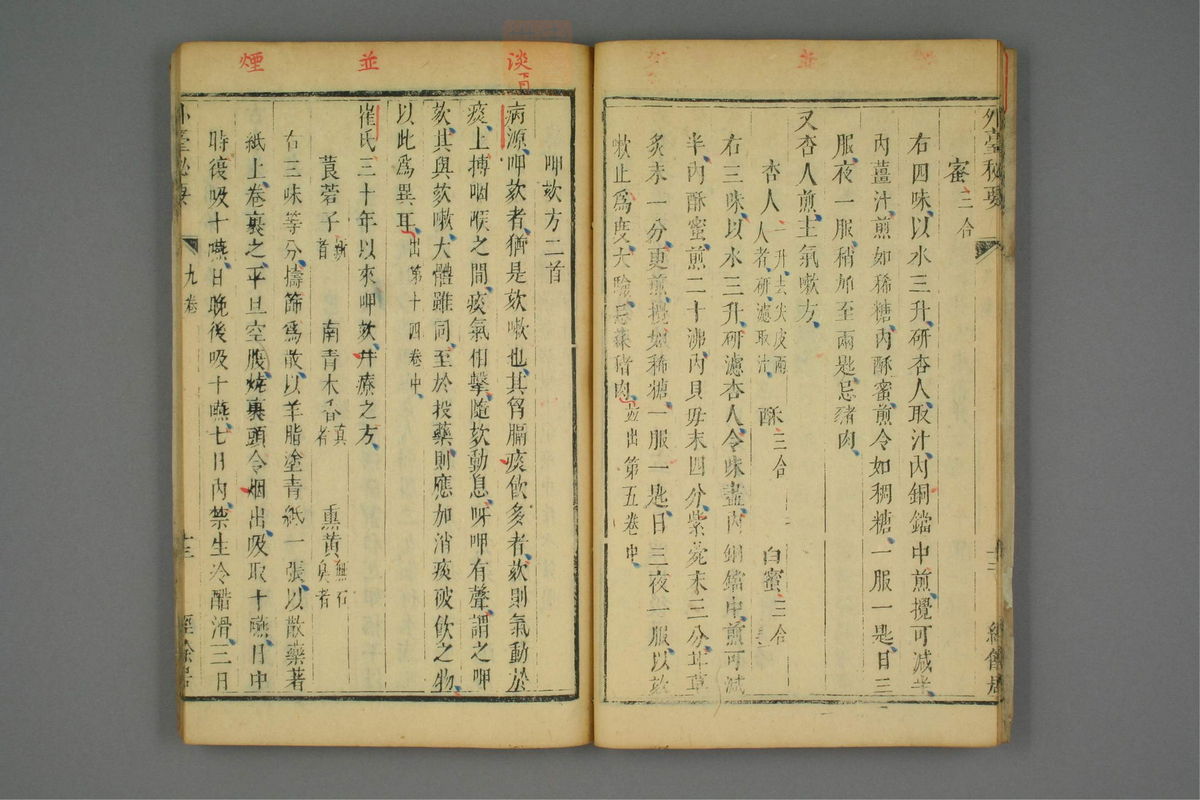 外臺秘要
蜜三合
右四味以水三升研杏人取汁內銅鐺中煎攪可減半
內薑汁煎如稀糖內酥蜜煎令如稠糖一服一匙日三
服夜一服稍加至兩匙忌豬肉
又杏人煎主氣嗽方
杏人一升去尖皮兩人者研濾取汁 酥三合 白蜜三合
右三味以水三升研濾杏人令味盡內銅鐺中煎可減
半內酥蜜煎二十沸內貝母末四分紫菀末三分甘草
炙末一分更煎攪如稀糖一服一匙日三夜一服以欬
嗽止為度大驗忌藻豬肉並出第五卷中
淡
並
煙
呷欬方二首
病源呷欬者猶是欬嗽也其胷膈痰飲多者欬則氣動於
痰上搏咽喉之間痰氣相擊隨欬動息呀呷有聲謂之呷
欬其與欬嗽大體雖同至於投藥則應加消痰破飲之物
以此為異耳出第十四卷中
崔氏三十年以來呷欬并療之方
莨菪子新者 南青木香真者 熏黃無石臭者
右三味等分擣篩為散以羊脂塗青紙一張以散藥著
紙上卷裹之平旦空腹燒裹頭令烟出吸取十嚥日中
時復吸十嚥日晚後吸十嚥七日內禁生冷醋滑三日
外臺秘要
九卷
十三
經餘居